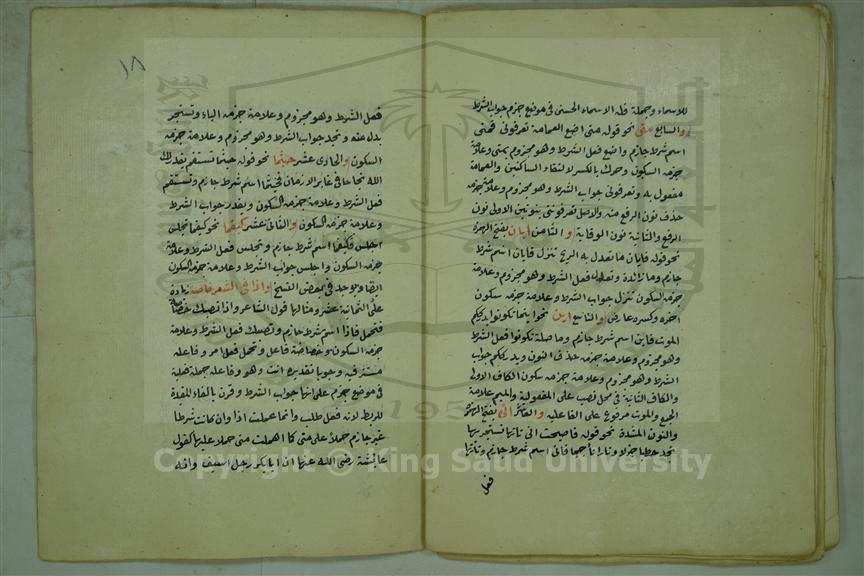 للاسماء وجملة فله الاسماء الحسنى في موضع جزم جواب الشرط
والسابع متى نحو قوله متى اضع العمامة تعرفوني فمتى
اسم شرط جازم واضع فعل الشرط وهو مجزوم بمتى وعلامة
جزمه السكون وحرك بالكسر لالتقاء الساكنين والعمامة
مفعول به وتعرفوني جواب الشرط وهو مجزوم وعلامة جزمه
حذف نون الرفع منه والاصل تعرفونني بنونين الاولى نون
الرفع والثانية نون الوقاية والثامن ايان بفتح الهمزة
نحو قوله فايان ما تعدل به الريح تنزل فايان اسم شرط
جازم وما زائدة وتعدل فعل الشرط وهو مجزوم وعلامة
جزمه السكون تنزل جواب الشرط وعلامة جزمه سكون
اخره وكسره عارض والتاسع اين نحو اينما تكونوا يدرككم
الموت فاين اسم شرط جازم وما صلة تكونوا فعل الشرط
وهو مجزوم وعلامة جزمه حذف النون ويدرككم جواب
الشرط وهو مجزوم وعلامة جزمه سكون الكاف الاولى
والكاف الثانية في محل نصب على المفعولية والميم علامة
الجمع والموت مرفوع على الفاعلية والعاشر انى بفتح الهمزة
والنون المشددة نحو قوله فاصبحت انى تاتها تستجر بها
تجد حطبا جزلا ونارا تاججا فانى اسم شرط جازم وتاتها
فعل
١٨
فعل الشرط وهو مجزوم وعلامة جزمه الياء وتستجر
بدل منه وتجد جواب الشرط وهو مجزوم وعلامة جزمه
السكون والحادى عشر حيثما نحو قوله حيثما تستقم يقدر لك
الله نجاحا في غابر الازمان فحيثما اسم شرط جازم وتستقم
فعل الشرط وعلامة جزمه السكون ويقدر جواب الشرط
وعلامة جزمه السكون والثانى عشر كيفما نحو كيفما تجلس
اجلس فكيفما اسم شرط جازم وتجلس فعل الشرط وعلامة
جزمه السكون واجلس جواب الشرط وعلامة جزمه السكون
ايضا ويوجد في بعض النسخ واذا في الشعر خاصة زيادة
على الثمانية عشر ومثالها قول الشاعر واذا تصبك خصاصة
فتحمل فاذا اسم شرط جازم وتصبك فعل الشرط وعلامة
جزمه السكون وخصاصة فاعل وتحمل فعل امر وفاعله
مستتر فيه وجوبا تقديره انت وهو وفاعله جملة فعلية
في موضع جزم على انها جواب الشرط وقرن بالفاء المفيدة
للربط لانه فعل طلب وانما عملت اذا وان كانت شرطا
غير جازم حملا على متى كما اهملت متى حملا عليها كقول
عائشة رضي الله عنها ان ابا بكر رجل اسيف وانه
Copyright © King Saud University
195